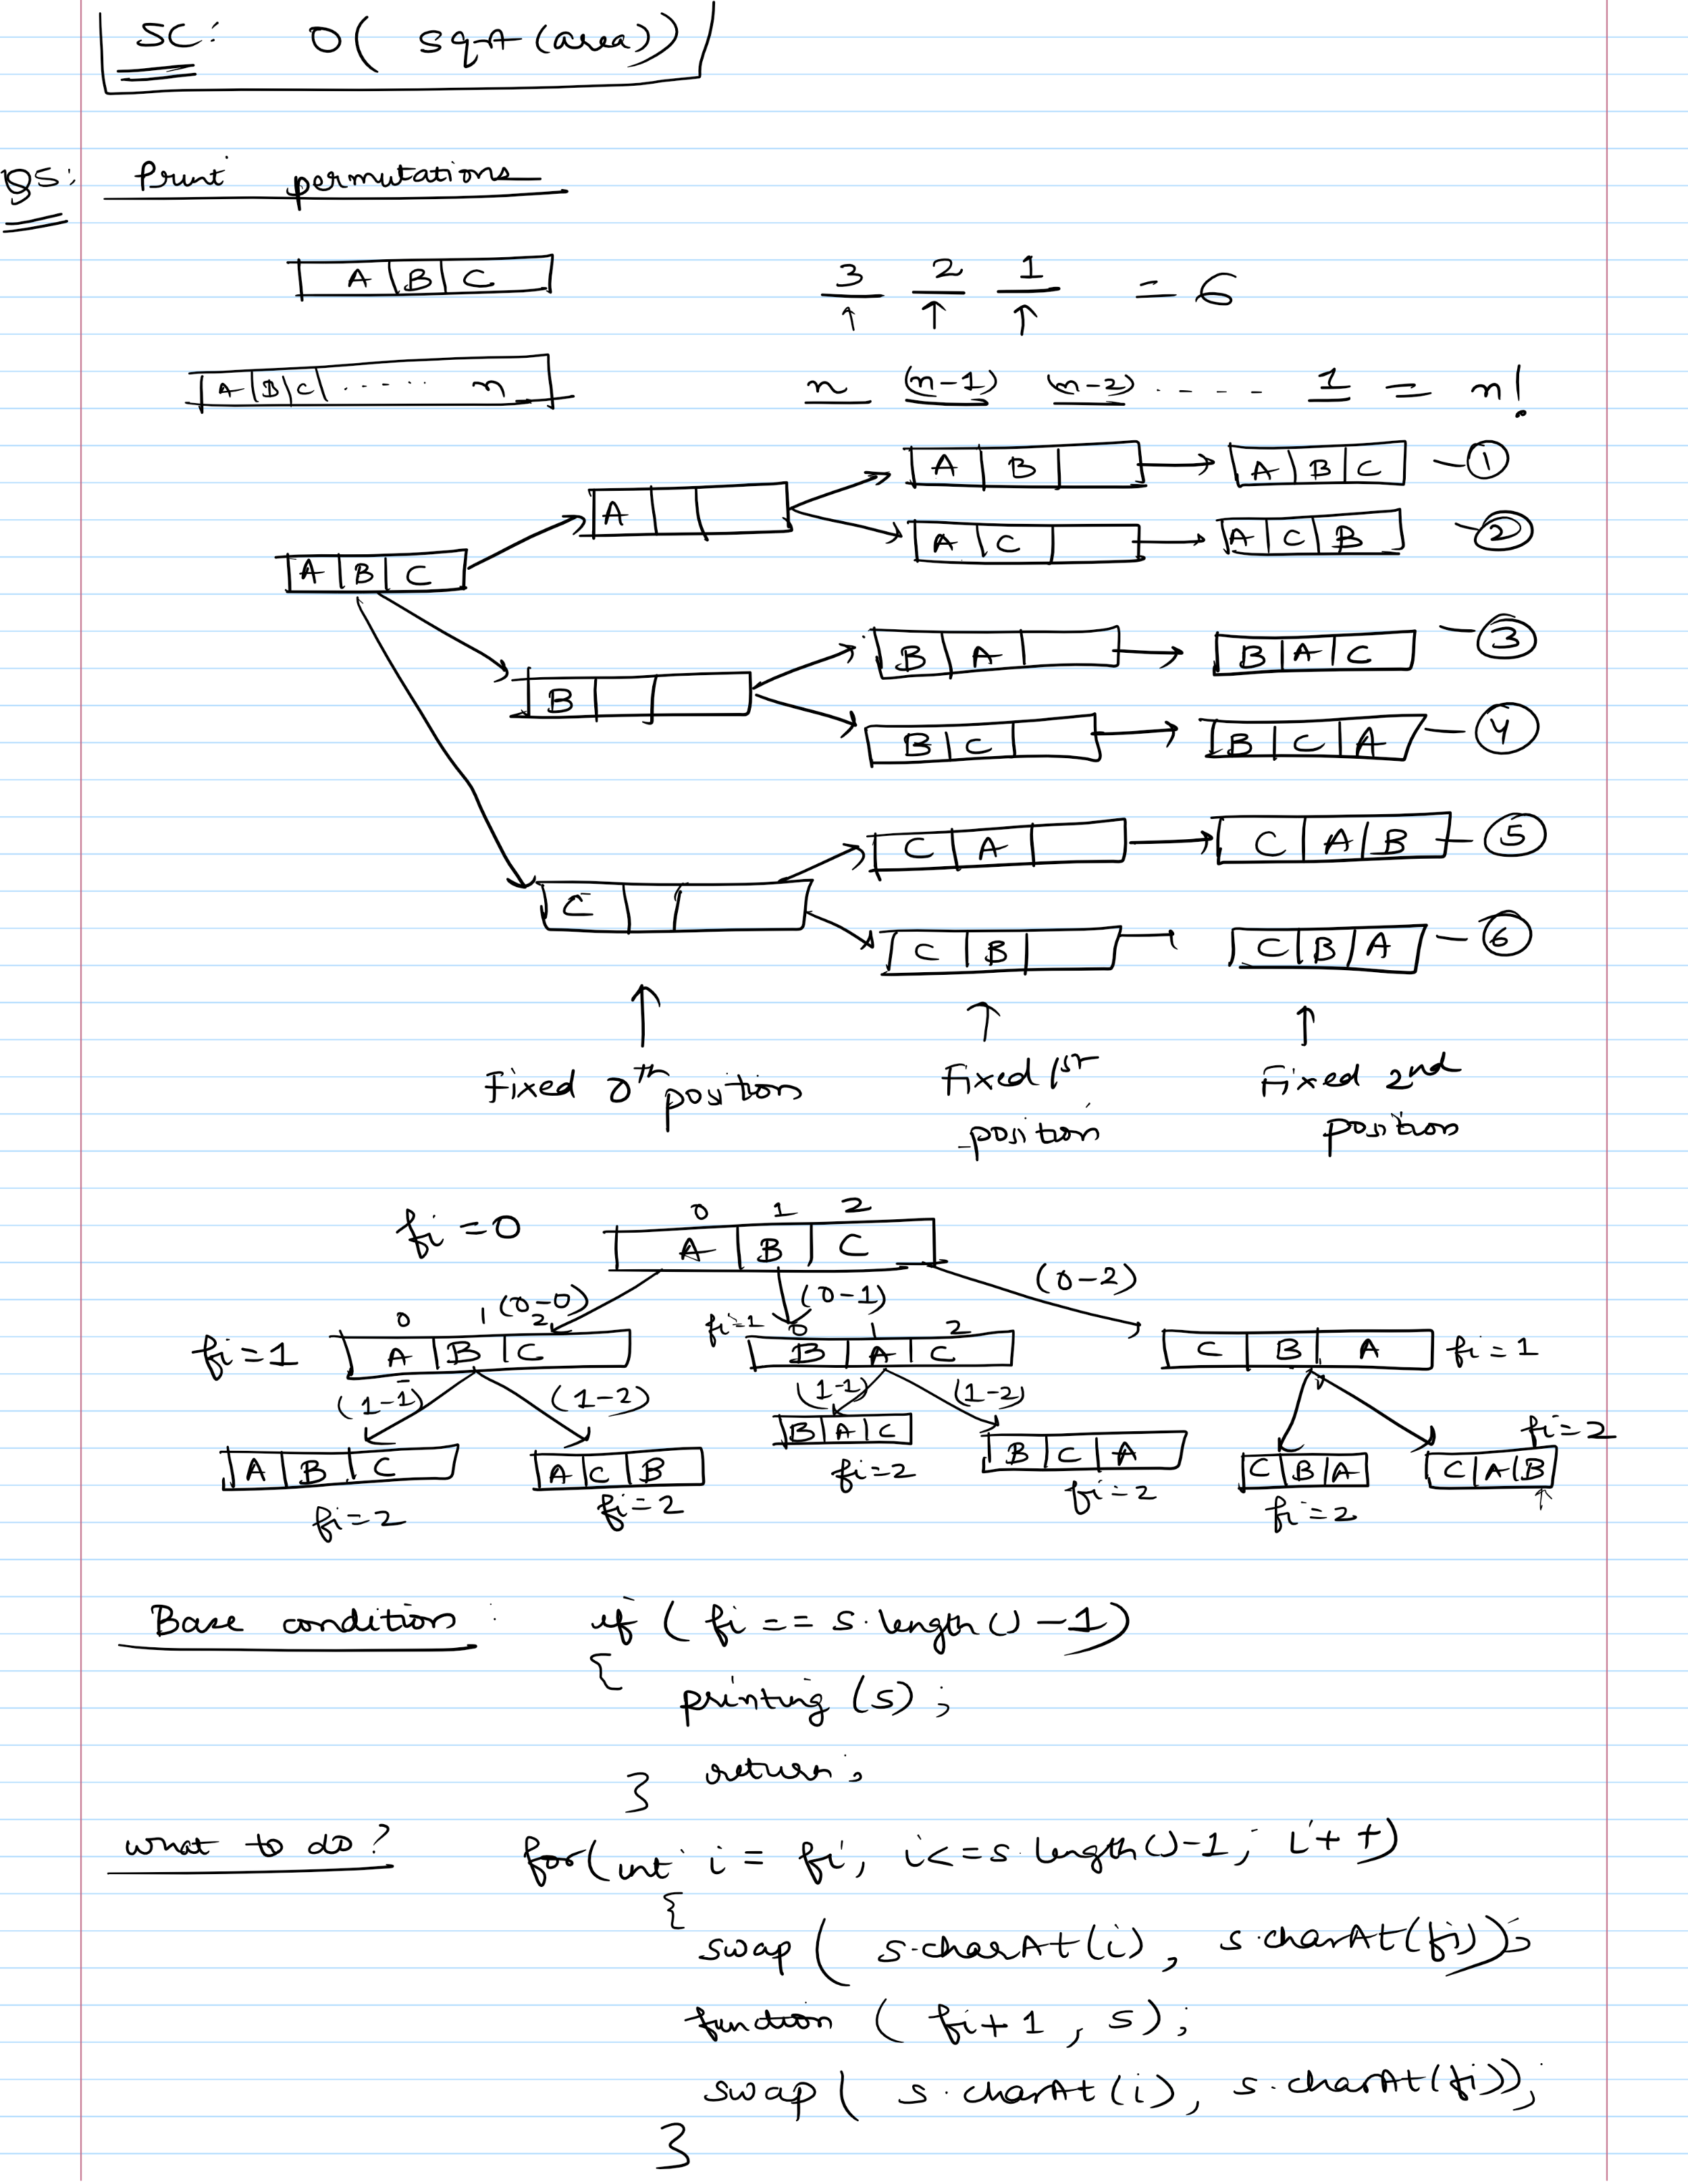 SC: O( sqrt (area))
Q5: Print permutations
A B C 3 2 1 = 6
A B C ...... n n (n-1) (n-2) ..... 1 = n!
A B A B C - 1
A
A C A C B - 2
A B C
B A B A C - 3
B
B C B C A - 4
C A C A B - 5
C
C B C B A - 6
Fixed 0th position Fixed 1st position Fixed 2nd position
0 1 2
fi = 0 A B C
(0-0) (0-1) (0-2)
0 1 2 fi=1 0 1 2
fi = 1 A B C B A C C B A fi = 1
(1-1) (1-2) (1-1) (1-2)
B A C fi = 2
A B C A C B B C A C B A C A B
fi = 2 fi = 2 fi = 2 fi = 2 fi = 2
Base condition : if ( fi == s.length() -1)
{
printing (s) ;
return;
}
what to do? for(int i = fi; i<=s.length()-1; i++)
{
swap ( s.charAt(i) , s.charAt(fi));
function ( fi+1 , s);
swap ( s.charAt(i), s.charAt(fi));
}